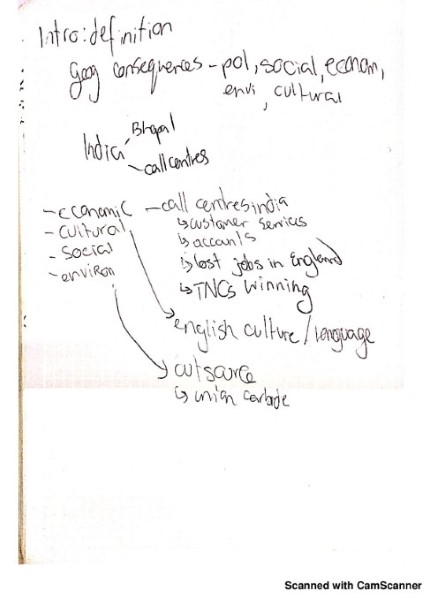 Intro: definition
Geog consequences - pol, social, econom,
envi, cultural
India
Bhopal
- call centres
- economic
- cultural
- social
- environ
- call centres india
↳ customer services
↳ accounts
↳ lost jobs in England
↳ TNCs winning
english culture / language
outsource
↳ union carbide
Scanned with CamScanner